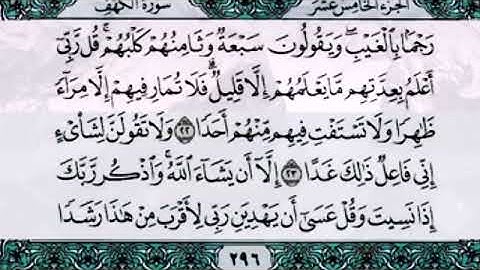 الجزء الخامس عشر
سورة الكهف
رَجْمًۢا بِٱلْغَيْبِ ۖ وَيَقُولُونَ سَبْعَةٌ وَثَامِنُهُمْ كَلْبُهُمْ ۚ قُل رَّبِّىٓ
أَعْلَمُ بِعِدَّتِهِم مَّا يَعْلَمُهُمْ إِلَّا قَلِيلٌ ۗ فَلَا تُمَارِ فِيهِمْ إِلَّا مِرَآءً
ظَٰهِرًا وَلَا تَسْتَفْتِ فِيهِم مِّنْهُمْ أَحَدًا ٢٢ وَلَا تَقُولَنَّ لِشَا۟ىْءٍ
إِنِّى فَاعِلٌ ذَٰلِكَ غَدًا ٢٣ إِلَّآ أَن يَشَآءَ ٱللَّهُ ۚ وَٱذْكُر رَّبَّكَ
إِذَا نَسِيتَ وَقُلْ عَسَىٰٓ أَن يَهْدِيَنِ رَبِّى لِأَقْرَبَ مِنْ هَٰذَا رَشَدًا
٢٩٦